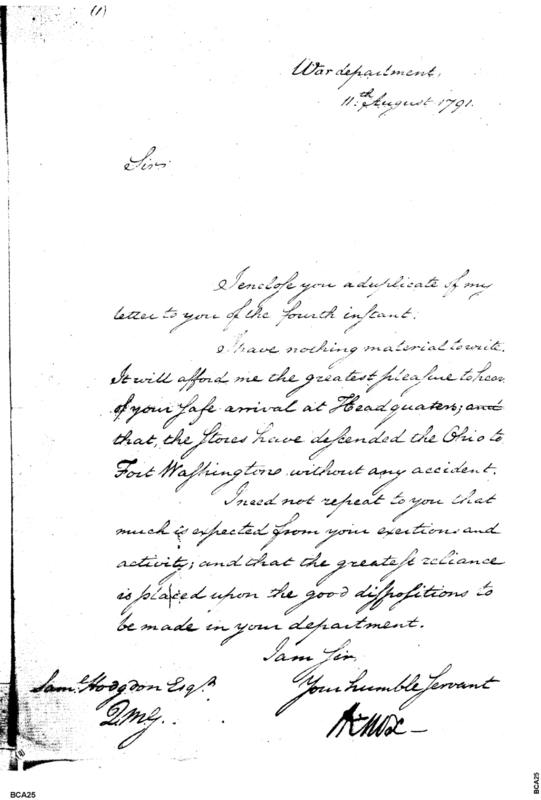 (1)
War department.
11th August 1791.
Sir,
I enclose you a duplicate of my
letter to you of the fourth instant.
I have nothing material to write.
It will afford me the greatest pleasure to hear
of your safe arrival at Headquarters; and
that, the Stores have descended the Ohio to
Fort Washington without any accident.
I need not repeat to you that
much is expected from your exertions and
activity; and that the greatest reliance
is placed upon the good dispositions to
be made in your department.
I am Sir
Your humble Servant
HKnox
Saml. Hodgdon Esqr.
Q.M.G.
BCA25
BCA25